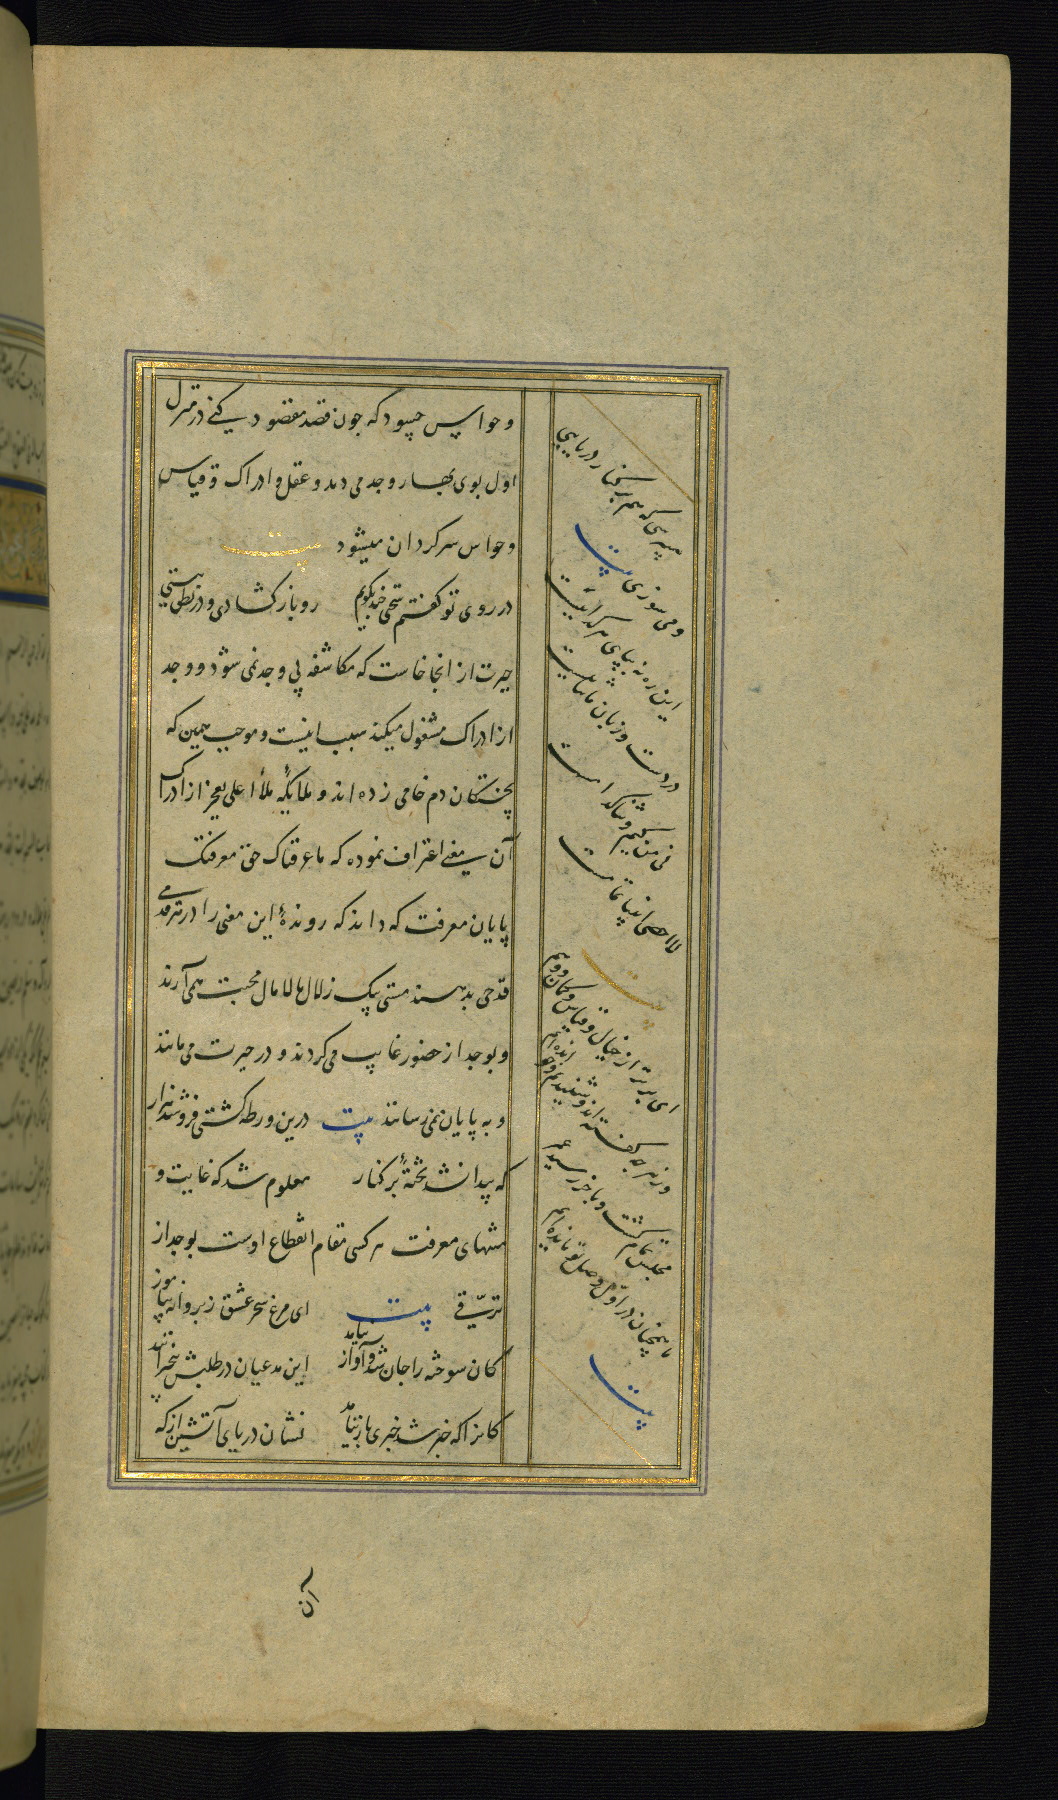 و حواس چه سود که چون قصد مقصود یکنی در منزل
اول بوی بهار وجد می دمد و عقل و ادراک و قیاس
و حواس سرکردان میشود بیت
در روی تو کفتم سخنی چند بکویم رو باز کشادی و در نطق ببستی
حیرت از انجا خاست که مکاشفه بی وجد نمی شود و وجد
از ادراک مشغول میکند سبب اینست و موجب همین که
پختکان دم خامی زده اند و ملایکهٔ ملأ اعلی بعجز از ادراک
آن معنی اعتراف نموده که ما عرفناک حق معرفتک
پایان معرفت که داند که روندهٔ این معنی را در هر قدمی
قدحی بدهند مستی یک زلال مالامال محبت همی آرند
و بوجد از حضور غایب می کردند و در حیرت می مانند
و به پایان نمی رسانند بیت درین ورطه کشتی فرو شد هزار
که پیدا نشد تختهٔ بر کنار معلوم شد که غایت و
منتهای معرفت هر کسی مقام انقطاع اوست بوجد از
ترقی بیت ای مرغ سحر عشق ز پروانه بیاموز
کان سوخته را جان شد و آواز نیامد این مدعیان در طلبش بیخبرانند
کانرا که خبر شد خبری باز نیامد نشان دریای آتشین از که
می پرسی که هم بر کنار دریایی
و می سوزی بیت
این ره نه بپای هر کداییست
در دست و زبان ما ثناییست
نی من کیم و ثنا کدامست
لا احصی انبیا تمامست
بیت
ای برتر از خیال و قیاس و کمان و وهم
وز هر چه کفته اند و شنیدیم و خوانده ایم
مجلس تمام کشت و بآخر رسید عمر
ما همچنان در اول وصف تو مانده ایم
بیت
آن